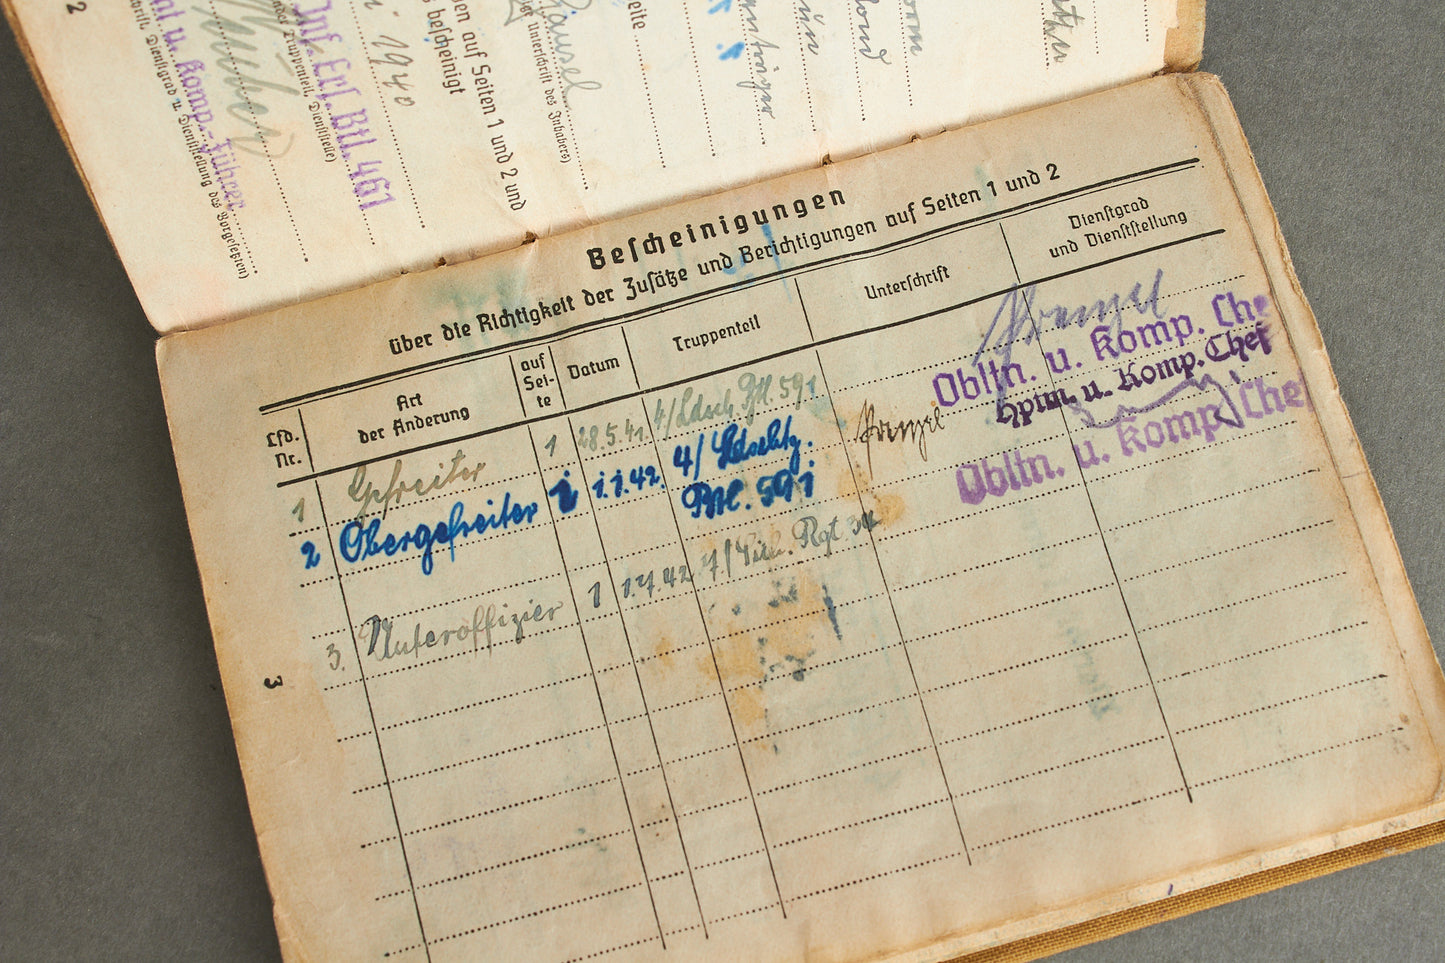 2
Inf. Ers. Btl. 461
Truppenteil, Dienststelle)
1940
u. Komp.-Führer
Dienstgrad u. Dienststellung des Vorgesetzten)
auf Seiten 1 und 2 und
bescheinigt
Unterschrift des Inhabers)
Bescheinigungen
über die Richtigkeit der Zusätze und Berichtigungen auf Seiten 1 und 2
Lfd. Nr.
Art der Änderung
auf Sei-te
Datum
Truppenteil
Unterschrift
Dienstgrad und Dienststellung
1 Gefreiter 1 28.5.41. 4/Ldsch. Btl. 591
Obltn. u. Komp. Che
2 Obergefreiter 1 1.1.42. 4/Ldschtz.
Btl. 591
Hptm. u. Komp. Chef
Obltn. u. Komp. Che
3. Unteroffizier 1 1.7.42
3